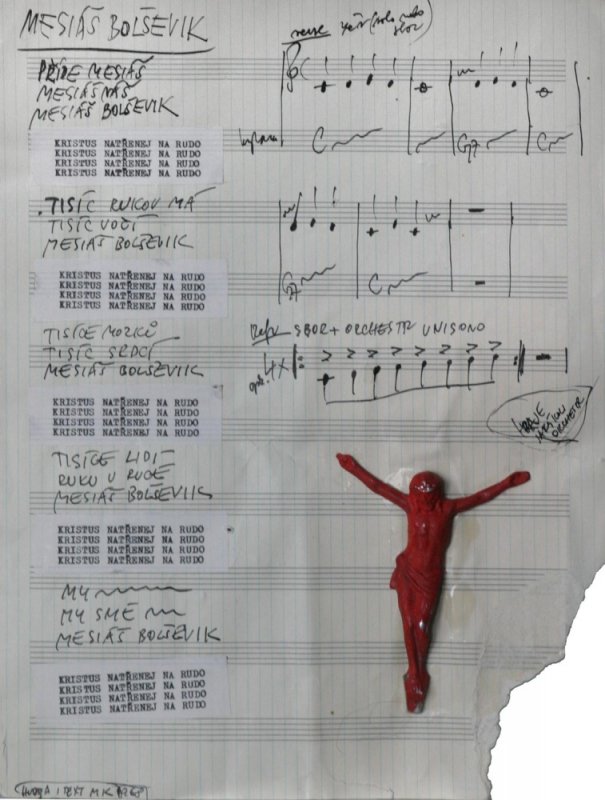 MESIÁŠ BOLŠEVIK
PŘIDE MESIÁŠ
MESIÁŠ NÁŠ
MESIÁŠ BOLŠEVIK
KRISTUS NATŘENEJ NA RUDO
KRISTUS NATŘENEJ NA RUDO
KRISTUS NATŘENEJ NA RUDO
KRISTUS NATŘENEJ NA RUDO
C
G7
C
TISÍC RUKOU MÁ
TISÍC VOČÍ
MESIÁŠ BOLŠEVIK
G7
C
KRISTUS NATŘENEJ NA RUDO
KRISTUS NATŘENEJ NA RUDO
KRISTUS NATŘENEJ NA RUDO
KRISTUS NATŘENEJ NA RUDO
SBOR + ORCHESTR UNISONO
4X
TISÍCE MOZKŮ
TISÍC SRDCÍ
MESIÁŠ BOLŠEVIK
KRISTUS NATŘENEJ NA RUDO
KRISTUS NATŘENEJ NA RUDO
KRISTUS NATŘENEJ NA RUDO
KRISTUS NATŘENEJ NA RUDO
TISÍCE LIDÍ
RUKU V RUCE
MESIÁŠ BOLŠEVIK
KRISTUS NATŘENEJ NA RUDO
KRISTUS NATŘENEJ NA RUDO
KRISTUS NATŘENEJ NA RUDO
KRISTUS NATŘENEJ NA RUDO
MY
MY SME
MESIÁŠ BOLŠEVIK
KRISTUS NATŘENEJ NA RUDO
KRISTUS NATŘENEJ NA RUDO
KRISTUS NATŘENEJ NA RUDO
KRISTUS NATŘENEJ NA RUDO
HUDBA I TEXT MK